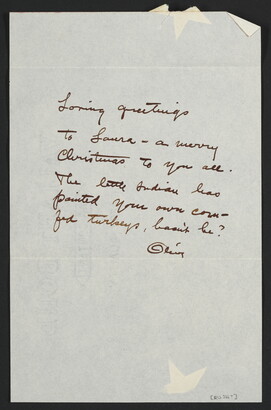 Loving greetings
to Laura – a merry
Christmas to you all.
The little Indian has
painted your own corn-
fed turkeys, hasn't he?
Olive